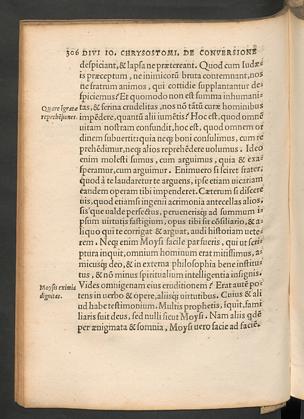 306 DIVI IO. CHRYSOSTOMI, DE CONVERSIONE
despiciant, & lapsa ne prætereant. Quod cum Iudæis
præceptum, ne inimicorũ bruta contemnant, nos
ne fratrum animos, qui cottidie supplantantur despiciemus?
Et quomodo non est summa inhumanitas,
& ferina crudelitas, nos nõ tátũ curæ hominibus
Quare
impẽdere, quantũ alii iumẽtis? Hoc est, quod omnẽ
uitam nostram confundit, hoc est, quod omnem ordinem
subuertit: quia neqʒ boni consulimus, cum reprehẽdimur,
neqʒ alios reprehẽdere uolumus. Ideo
enim molesti sumus, cum arguimus, quia & exasperamur,
cum arguimur. Enimuero si sciret frater,
quod á te laudaretur te arguens, ipse etiam uicariam
eandem operam tibi impenderet. Cæterum si discere
uis, quod etiamsi ingenii acrimonia antecellas alios,
sis que ualde perfectus, perueneris qʒ ad summum ipsum
uirtutis fastigium, opus tibi sit cõsiliario, & aliquo
qui te corrigat & arguat, audi historiam ueterem.
Neqʒ enim Moysi facile par fueris, qui ut scriptura
inquit, omnium hominum erat mitissimus, amicus
qʒ deo, & in externa philosophia bene institutus,
& nõ minus spirituali intelligentia insignis.
Moysis eximia
dignitas.
Vides omnigenam eius eruditionem? Erat autẽ potens
in uerbo & opere, aliis qʒ uirtutibus. Cuius & aliud
habe testimonium. Multis prophetis, inquit, familiaris
fuit deus, sed nulli sicut Moysi. Nam aliis qdẽ
per ænigmata & somnia, Moysi uero facie ad faciẽ.